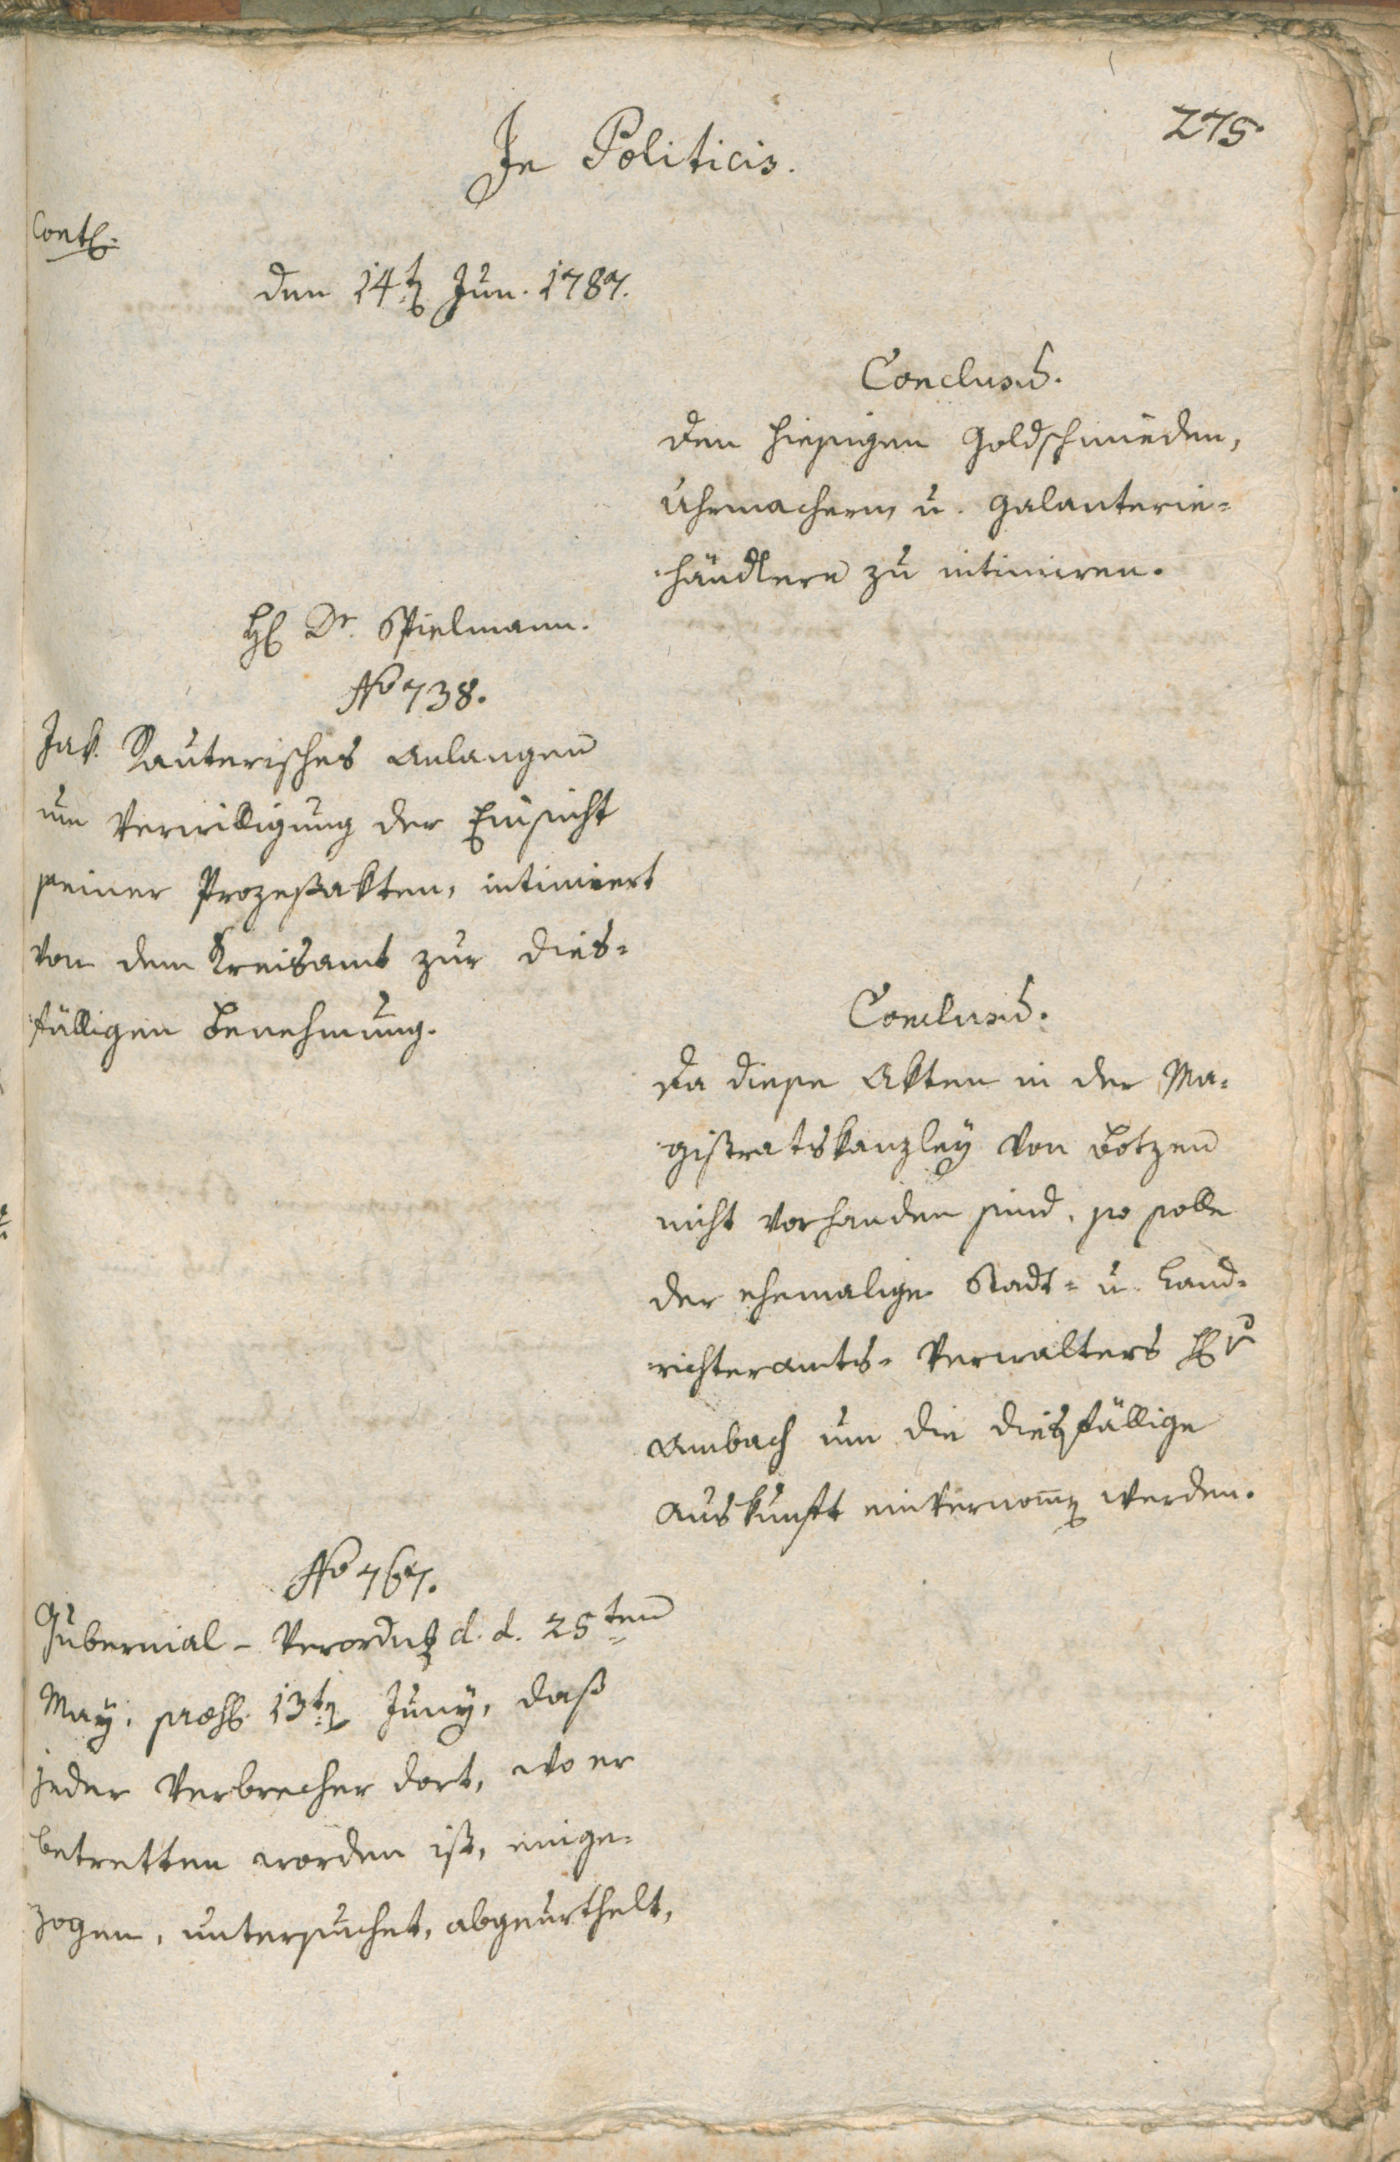 275
In Politicis.
Cont.
den 14t Jun. 1787.
Conclus.
Den hiesigen Goldschmieden,
Uhrmachern, u. Galanterie-
händlern zu intimiren.
H Dr. Spielmann.
No 738.
Jak. Rauterisches Anlangen
um Verwilligung der Einsicht
seiner Prozeßakten, intimiert
von dem Kreisamt zur dies-
fälligen Benehmung.
Conclus.
Da diese Akten in der Ma-
gistratskanzley von Botzen
nicht vorhanden sind, so solle
der ehemalige Stadt- u. Land-
richteramts-Verwalters H v
Ambach um die diesfällige
Auskunft einvernom̄ werden.
No 767.
Gubernial-Verordng d. d. 25ten
May, præs. 13t Juny, daß
jeder Verbrecher dort, wo er
betretten worden ist, einge-
zogen, untersuchet, abgeurthelt,